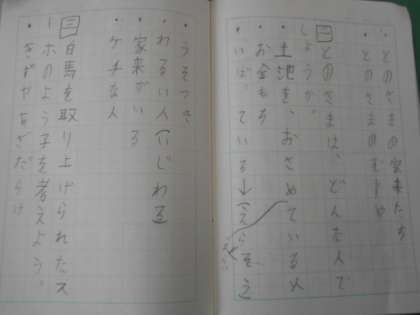 ・とのさまの家来たち
・とのさまの
二 とのさまは、どんな人で
しょうか。
・土地を、おさめている人
・お金もち
・いばっている→（えらそう）
・うそつき
・わるい人（いじわる）
・家来がいる
・ケチな人
三 白馬を取り上げられたス
ーホのようすを考えよう。
・きずやあざだらけ